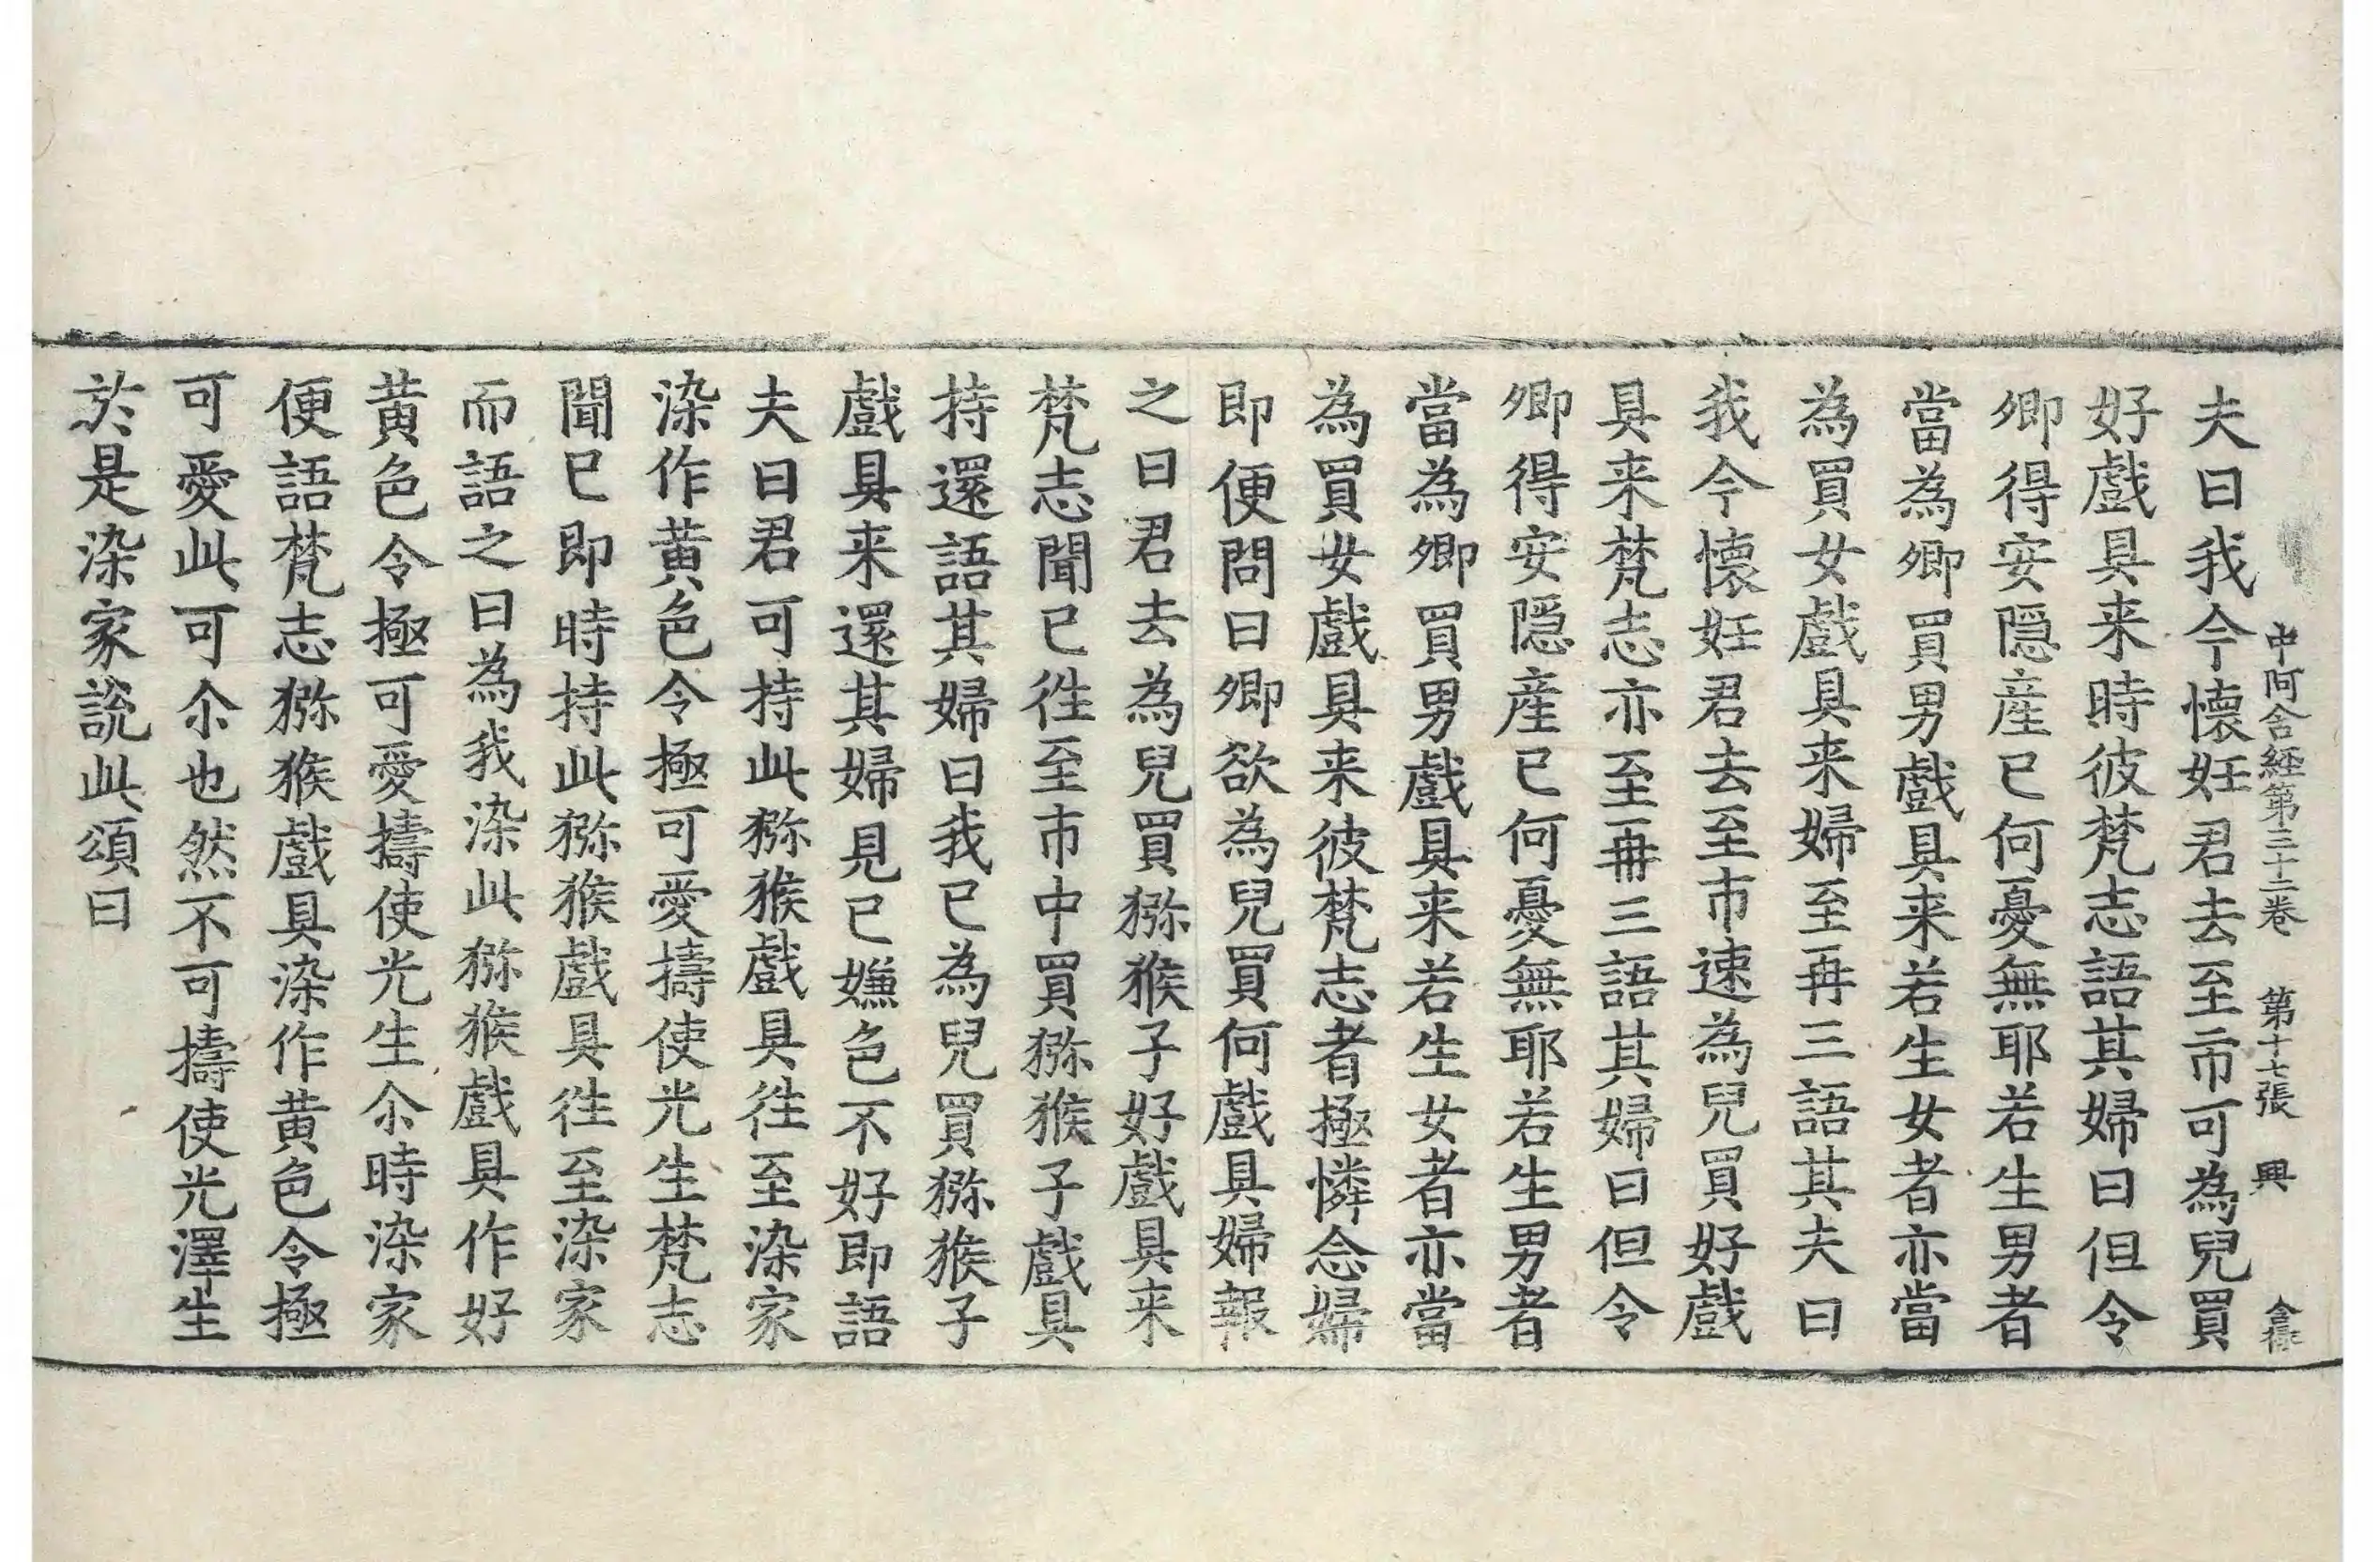 中阿含経第三十二卷 第十七張 興
夫曰我今懷妊君去至市可為兒買
好戲具来時彼梵志語其婦曰但令
卿得安隠産已何憂無耶若生男者
當為卿買男戲具来若生女者亦當
為買女戲具来婦至再三語其夫曰
我今懷妊君去至市速為兒買好戲
具来梵志亦至再三語其婦曰但令
卿得安隠産已何憂無耶若生男者
當為卿買男戲具来若生女者亦當
為買女戲具来彼梵志者極憐念婦
即便問曰卿欲為兒買何戲具婦報
之曰君去為兒買猕猴子好戲具来
梵志聞已往至市中買猕猴子戲具
持還語其婦曰我已為兒買猕猴子
戲具来還其婦見已嫌色不好即語
夫曰君可持此猕猴戲具往至染家
染作黄色令極可愛擣使光生梵志
聞已即時持此猕猴戲具往至染家
而語之曰為我染此猕猴戲具作好
黄色令極可愛擣使光生尒時染家
便語梵志猕猴戲具染作黄色令極
可愛此可尒也然不可擣使光澤生
於是染家說此頌曰